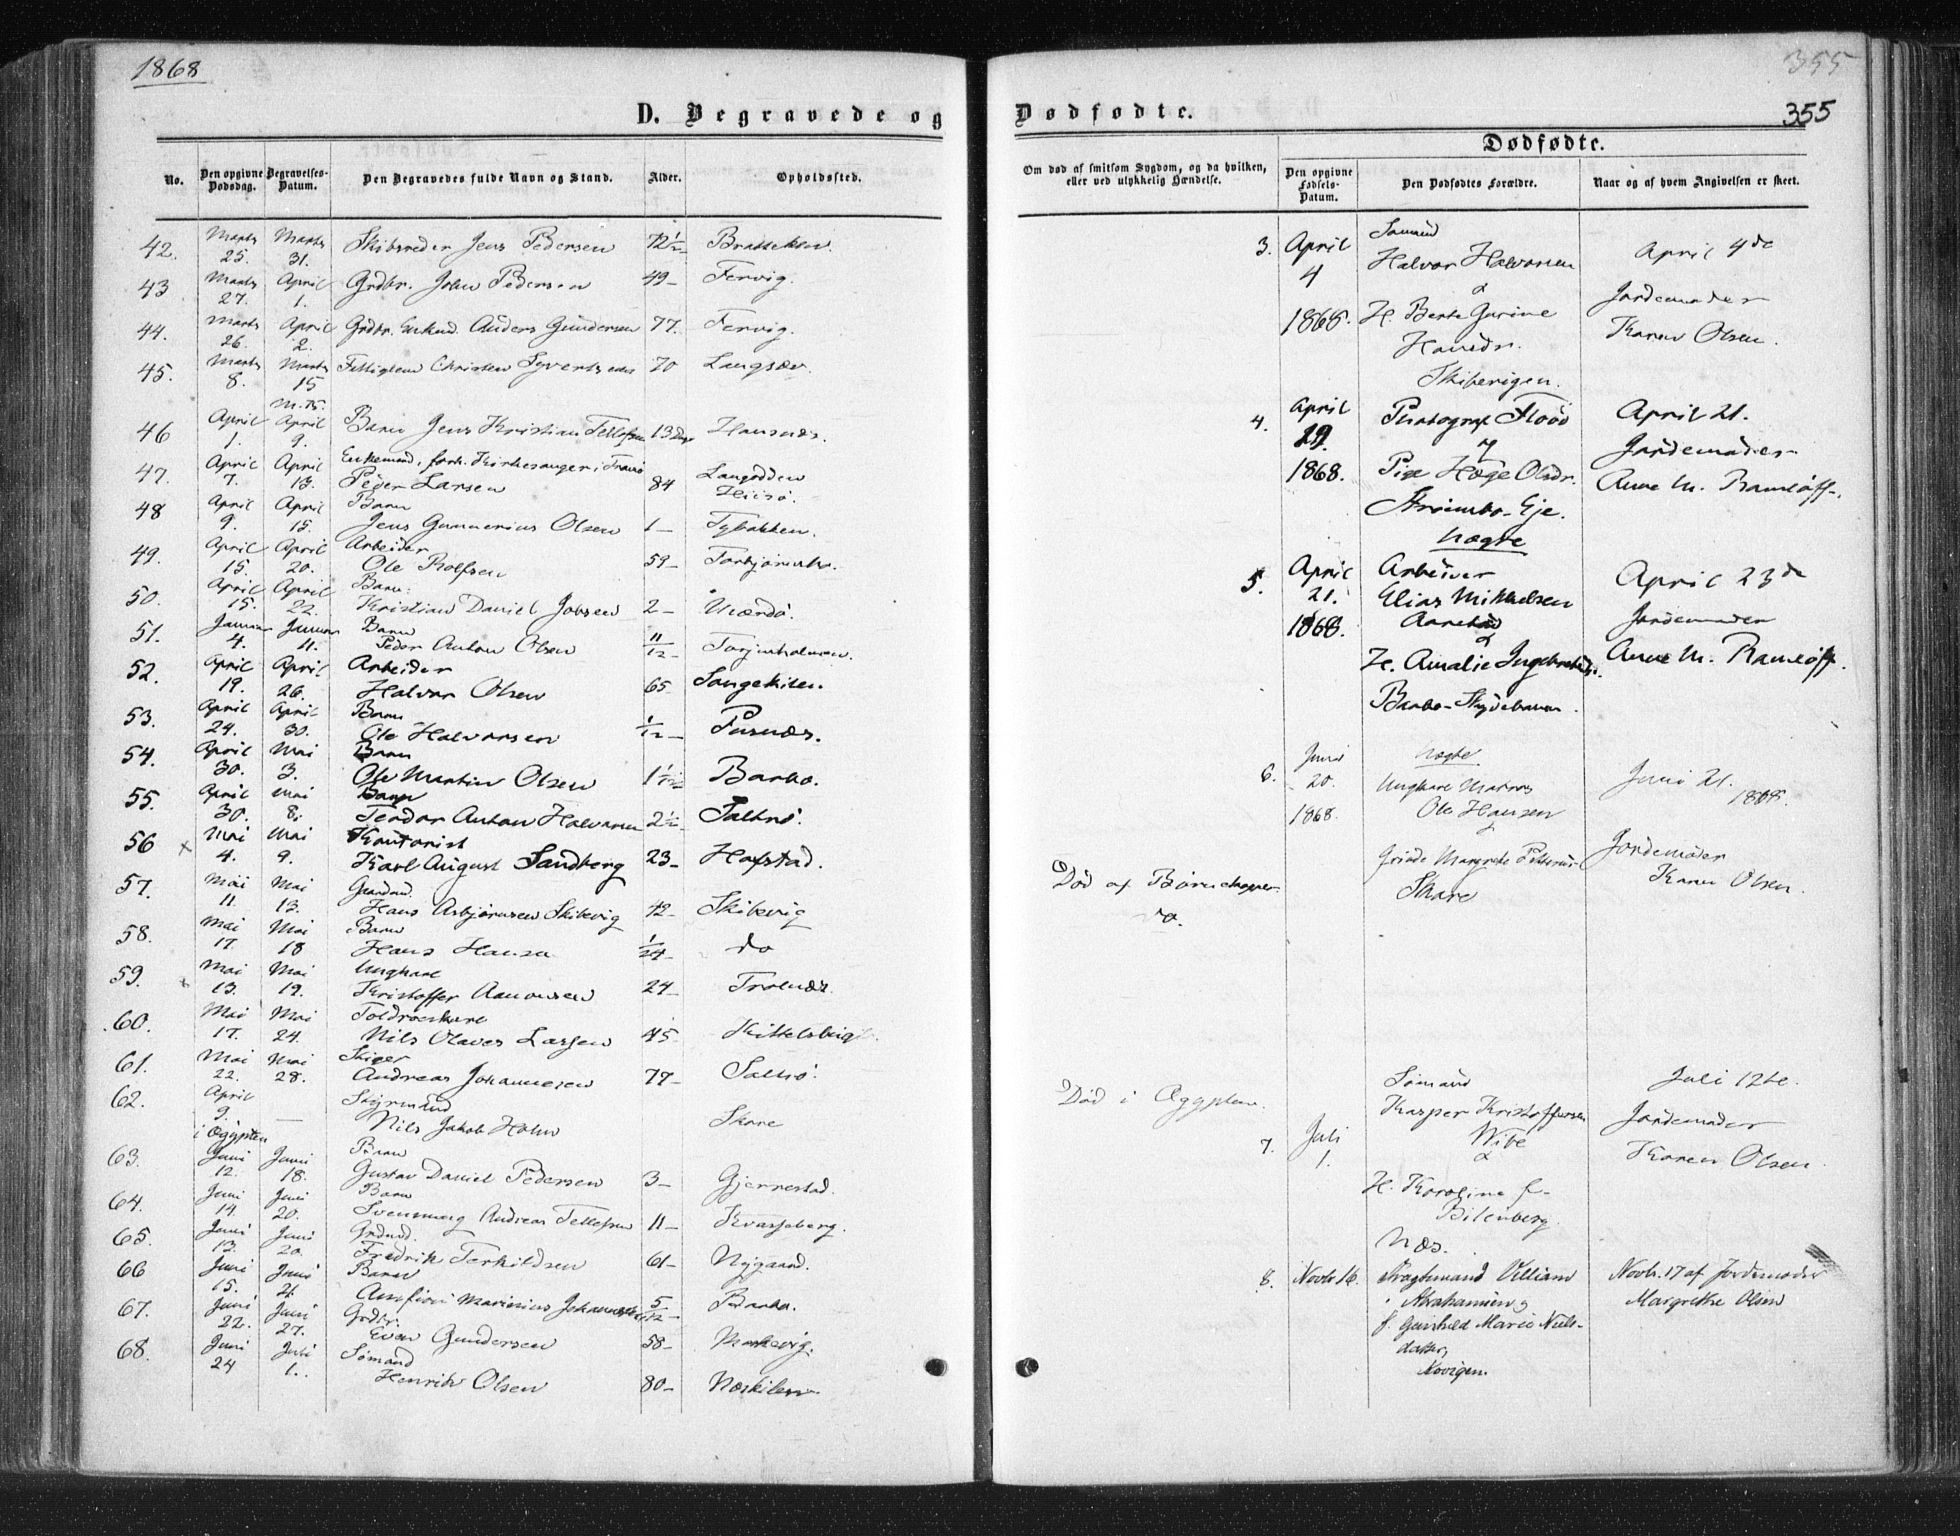 1868
D. Begravede og
No. Den opgivne Dødsdag. Begravelses-Datum. Den Begravedes fulde Navn og Stand. Alder. Opholdssted.
42. Marts 25. Marts 31. Skibsreder Jens Pedersen 72½
43 Marts 27. April 1. Grdbr. John Pedersen 49 – Fervig.
44. Marts 26. April 2. Grdbr. Enkmd. Anders Gundersen 77. Fervig.
45. Marts 8. Marts 15 Christen Syvertsen 70 Langsæv.
46 April 1. April 9. Barn Jens Kristian Tellefsen 13 Dage
47. April 7. April 13. Enkemand, forh. Kirkesanger i Tromø
Peder Larsen 84 Langodden Hisø.
48 April 9. April 15. Barn
Jens Gunnerius Olsen 1 – Tybakken.
49. April 15. April 20. Arbeider
Ole Rolfsen 59 –
50. April 15. April 22. Barn:
Kristian Daniel Jobsen 2 – Mærdø.
51. Januar 4. Januar 11. Barn
Peder Anton Olsen 11/12 – Torjusholmen.
52. April 19. April 26. Arbeider
Halvor Olsen 65 Songekilen.
53. April 24. April 30. Barn
Ole Halvorsen 1/12 – Pusnæs.
54. April 30. Mai 3. Barn
Ole Martin Olsen 1 1/12 Barbo.
55. April 30. Mai 8. Barn
Teodor Anton Halvorsen 2½ – Saltrø.
56 x Mai 4. Mai 9. Kontorist
Karl August Sandberg 23 – Hofstad.
57. Mai 11. Mai 13. Gaardmd.
Hans Asbjørnsen Skibevig 42 – Skibevig
58. Mai 17. Mai 18 Barn
Hans Hansen 1/24 – do
59. x Mai 13. Mai 19. Ungkarl
Kristoffer Aanonsen 24 – Tromæs.
60. Mai 17. Mai 24. Toldroerskarl
Nils Olaves Larsen 45 Kittelsbugt
61. Mai 22. Mai 28. Skiper
Andreas Johannesen 77 – Saltrø.
62. April 9. i Ægypten — Styrmand
Nils Jakob Holm Skare
63. Juni 12. Juni 18. Barn
Gustav Daniel Pedersen 3 – Gjerrestad.
64. Juni 14. Juni 20. Barn
Svennung Andreas Tellefsen 11 – Kvasseberg.
65. Juni 13. Juni 20. Grdmd.
Fredrik Terkildsen 61 – Nygaard.
66 Juni 15. Juni 21. Barn
Amfion Marinius Johannesen 5/12 – Barbo.
67. Juni 22. Juni 27. Grdbr.
Even Gundersen 58 – Markevig.
68. Juni 24 Juli 1. Sømand
Henrik Olsen 80 – Næskilen
355
355
Dødfødte.
Dødfødte.
Om død af smitsom Sygdom, og da hvilken, eller ved ulykkelig Hændelse. Den opgivne Fødsels-Datum. Den Dødfødtes Forældre. Naar og af hvem Angivelsen er skeet.
3. April 4 1868. Sømand
Halvor Halvorsen
&
H. Berte Gurine
Hansdr.
Skibevigen.
April 4de
Jordemoder
Karen Olsen.
4. April 19. 1868. Photograf Flood
&
Pige Hæge Olsdr.
Strømsbo-Eje.
uægte
April 21.
Jordemoder
Anne M. Ramløff.
5. April 21. 1868. Arbeider
Elias Mikkelsen
Aarestad
&
H. Amalie Ingebretsd.
Barbo-Skydebanen.
April 23de
Jordemoder
Anne M. Ramløff.
6. Juni 20. 1868. uægte
Ungkarl Matros
Ole Hansen
&
Margrete
Skare
Juni 21. 1868.
Jordemoder
Karen Olsen.
Død af
do.
Død i Ægypten.
7. Juli 1. Sømand
Kasper Kristoffersen
Wibe
&
H. Karoline f.
Bilenberg.
Næs.
Juli 12te.
Jordemoder
Karen Olsen.
8. Novbr. 16. Fragtmand Villiam
Abrahamsen og
f. Gunhild Marie Niels-
datter,
Kovigen.
Novb. 17 af Jordemoder
Margrethe Olsen